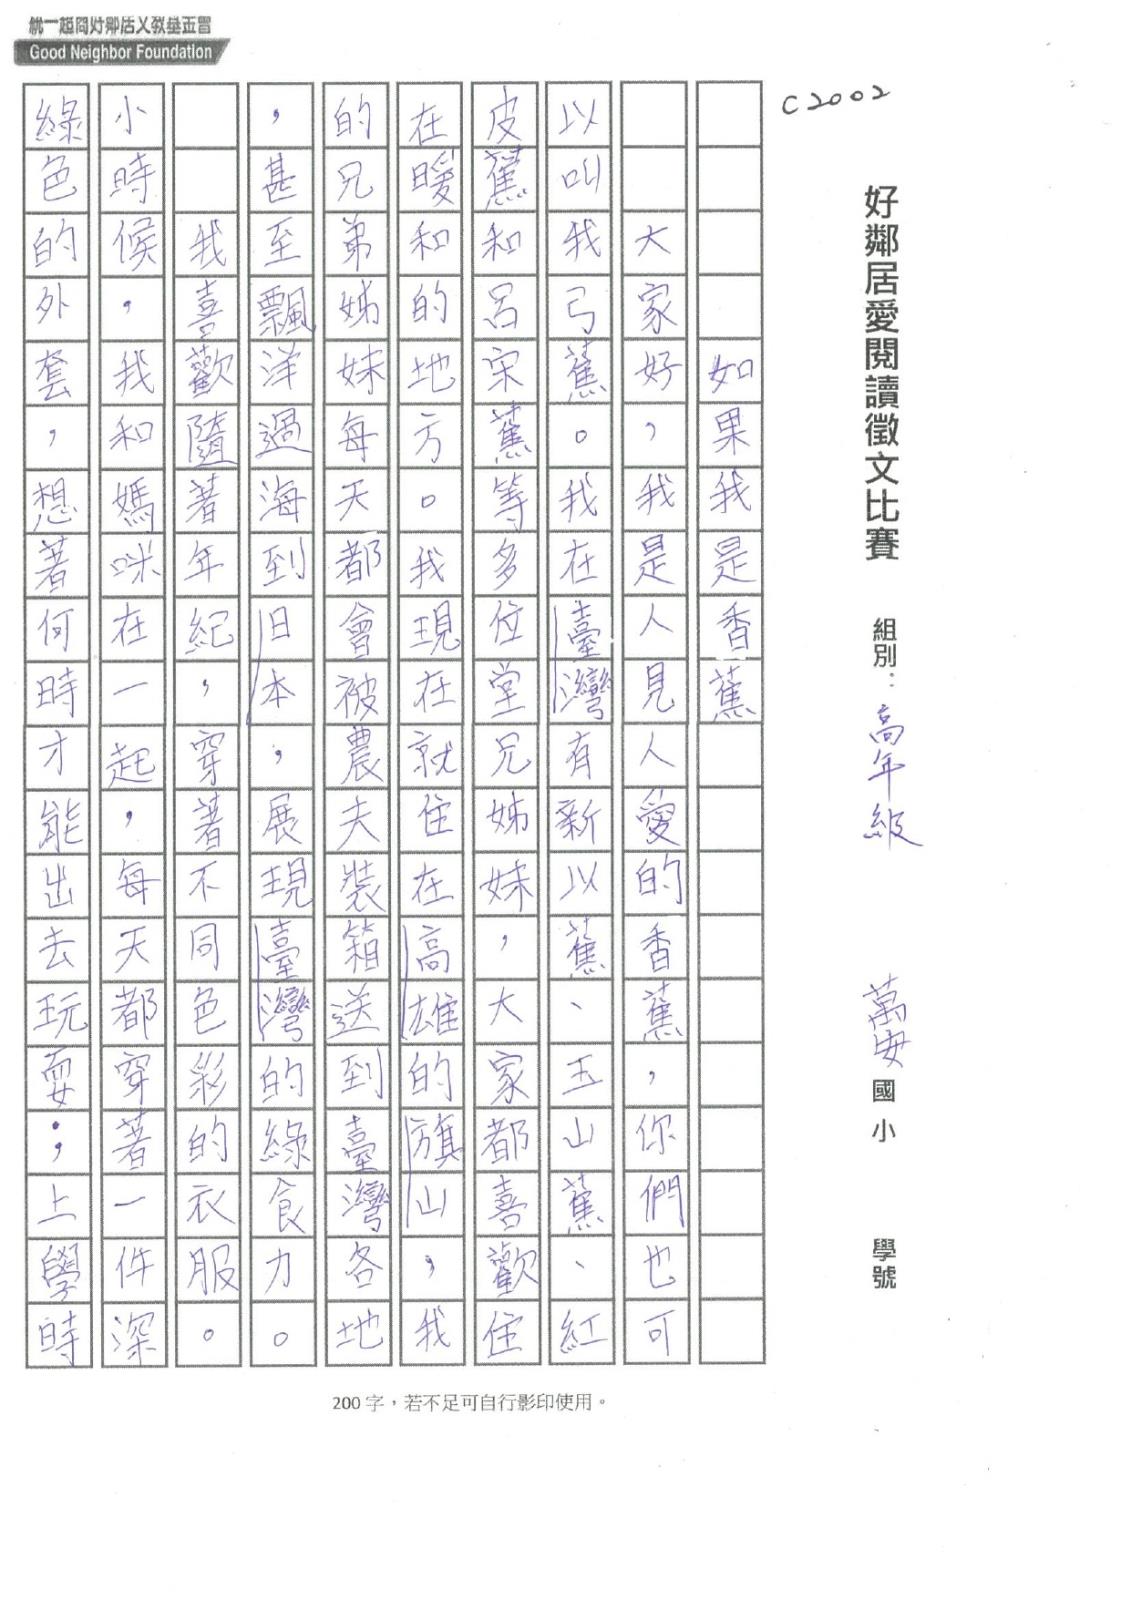 統一超商好鄰居文教基金會
Good Neighbor Foundation
C2002
好鄰居愛閱讀徵文比賽 組別：高年級 萬安國小 學號
如果我是香蕉
大家好，我是人見人愛的香蕉，你們也可
以叫我弓蕉。我在臺灣有新以蕉、玉山蕉、紅
皮蕉和呂宋蕉等多位堂兄姊妹，大家都喜歡住
在暖和的地方。我現在就住在高雄的旗山，我
的兄弟姊妹每天都會被農夫裝箱送到臺灣各地
，甚至飄洋過海到日本，展現臺灣的綠食力。
我喜歡隨著年紀，穿著不同色彩的衣服。
小時候，我和媽咪在一起，每天都穿著一件深
綠色的外套，想著何時才能出去玩耍；上學時
200字，若不足可自行影印使用。